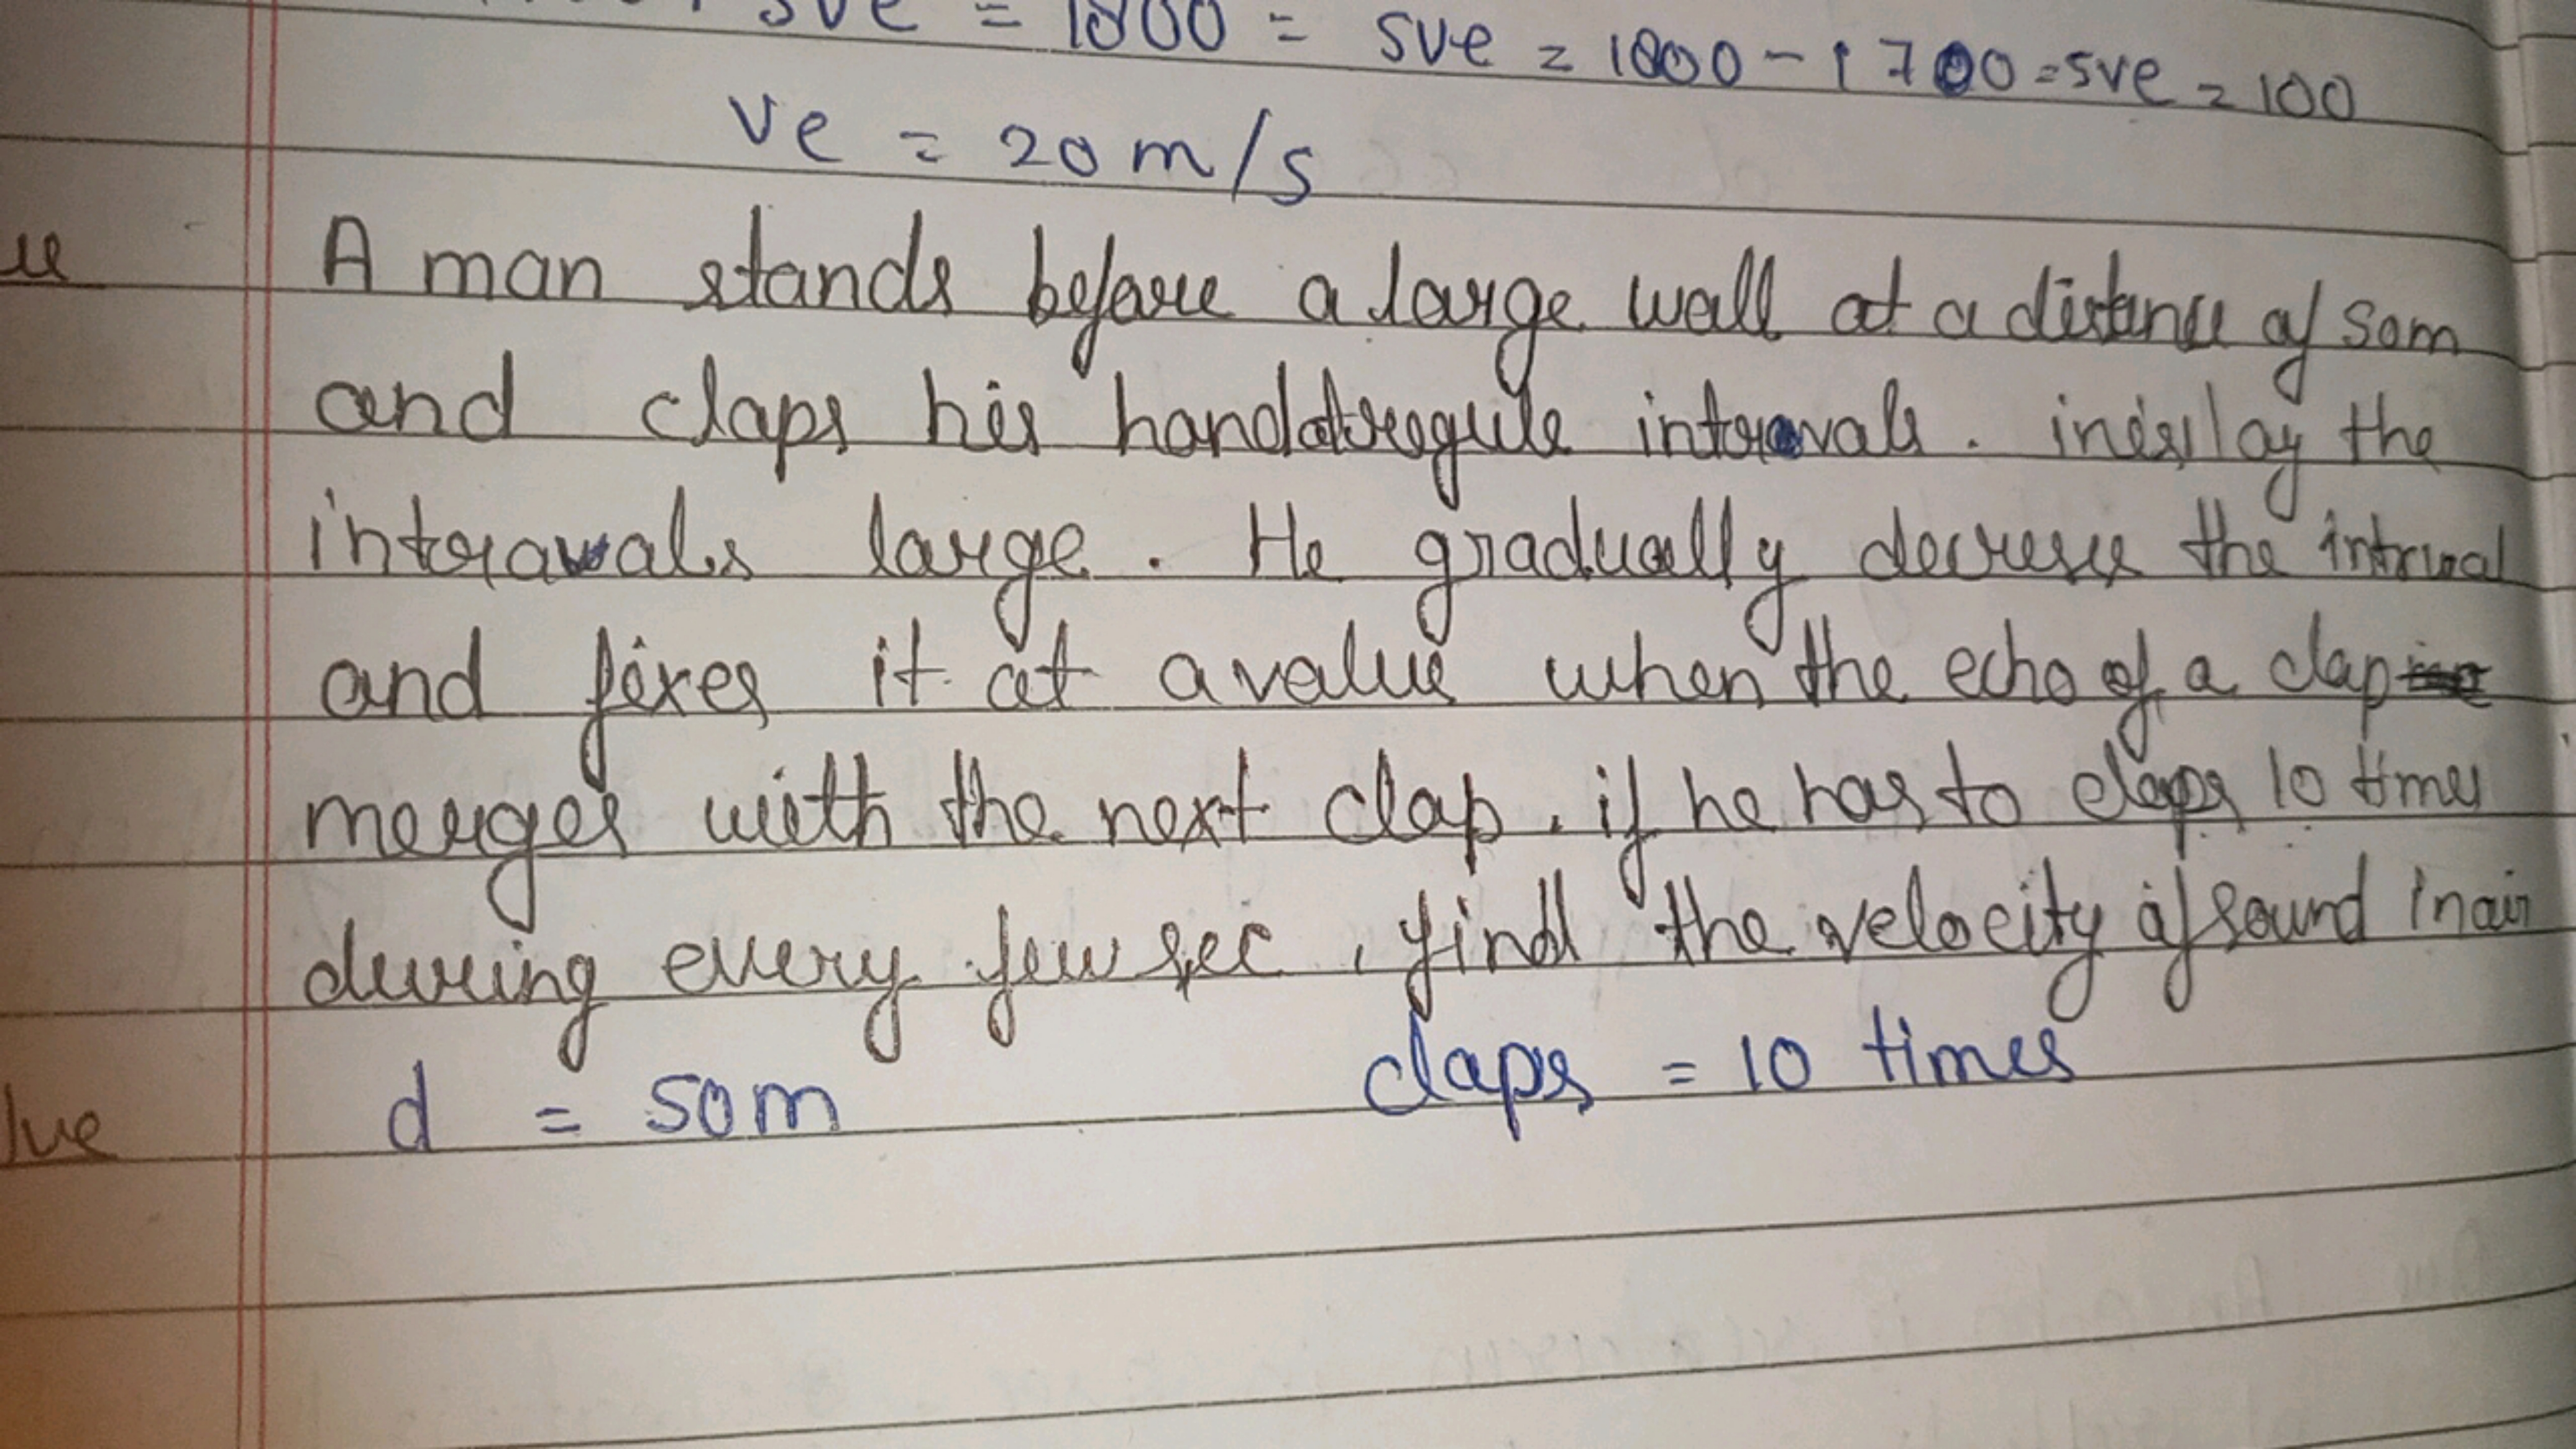 sve = 1800 = sve = 1800 - 1700 = sve = 100
ve = 20 m/s
A man stands before a large wall at a distance of 50m
and claps his hand at regule intervals. the
intervals large. He gradually decreses the intrval
and fixes it at a value when the echo of a clap
merges with the next clap. if he has to claps 10 times
during every few sec, find the velocity of sound in air
d = 50m claps = 10 times
lve